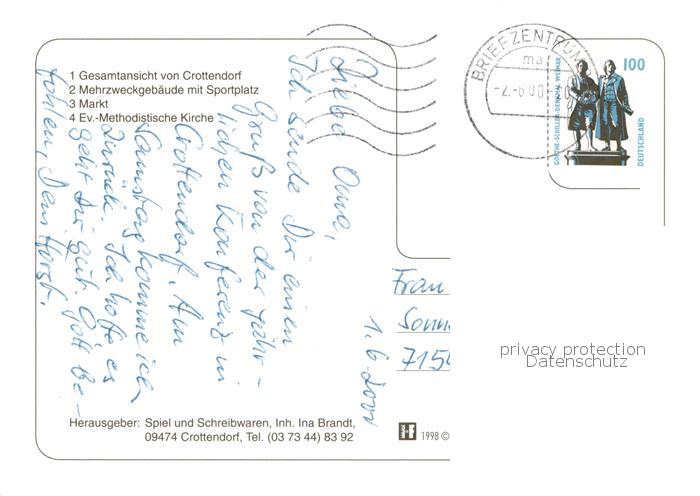 1 Gesamtansicht von Crottendorf
2 Mehrzweckgebäude mit Sportplatz
3 Markt
4 Ev.-Methodistische Kirche
1.6.2000
Liebe Oma,
Ich sende Dir einen
Gruß von der Jähr-
lichen Konferenz in
Crottendorf. Am
Samstag komme ich
zurück. Ich hoffe es
geht Dir gut. Gott be-
fohlen, Dein Horst.
Herausgeber: Spiel und Schreibwaren, Inh. Ina Brandt,
09474 Crottendorf, Tel. (03 73 44) 83 92
1998 ©
BRIEFZENTRUM
100
GOETHE-SCHILLER-DENKMAL WEIMAR
DEUTSCHLAND
Frau
7154
privacy protection
Datenschutz